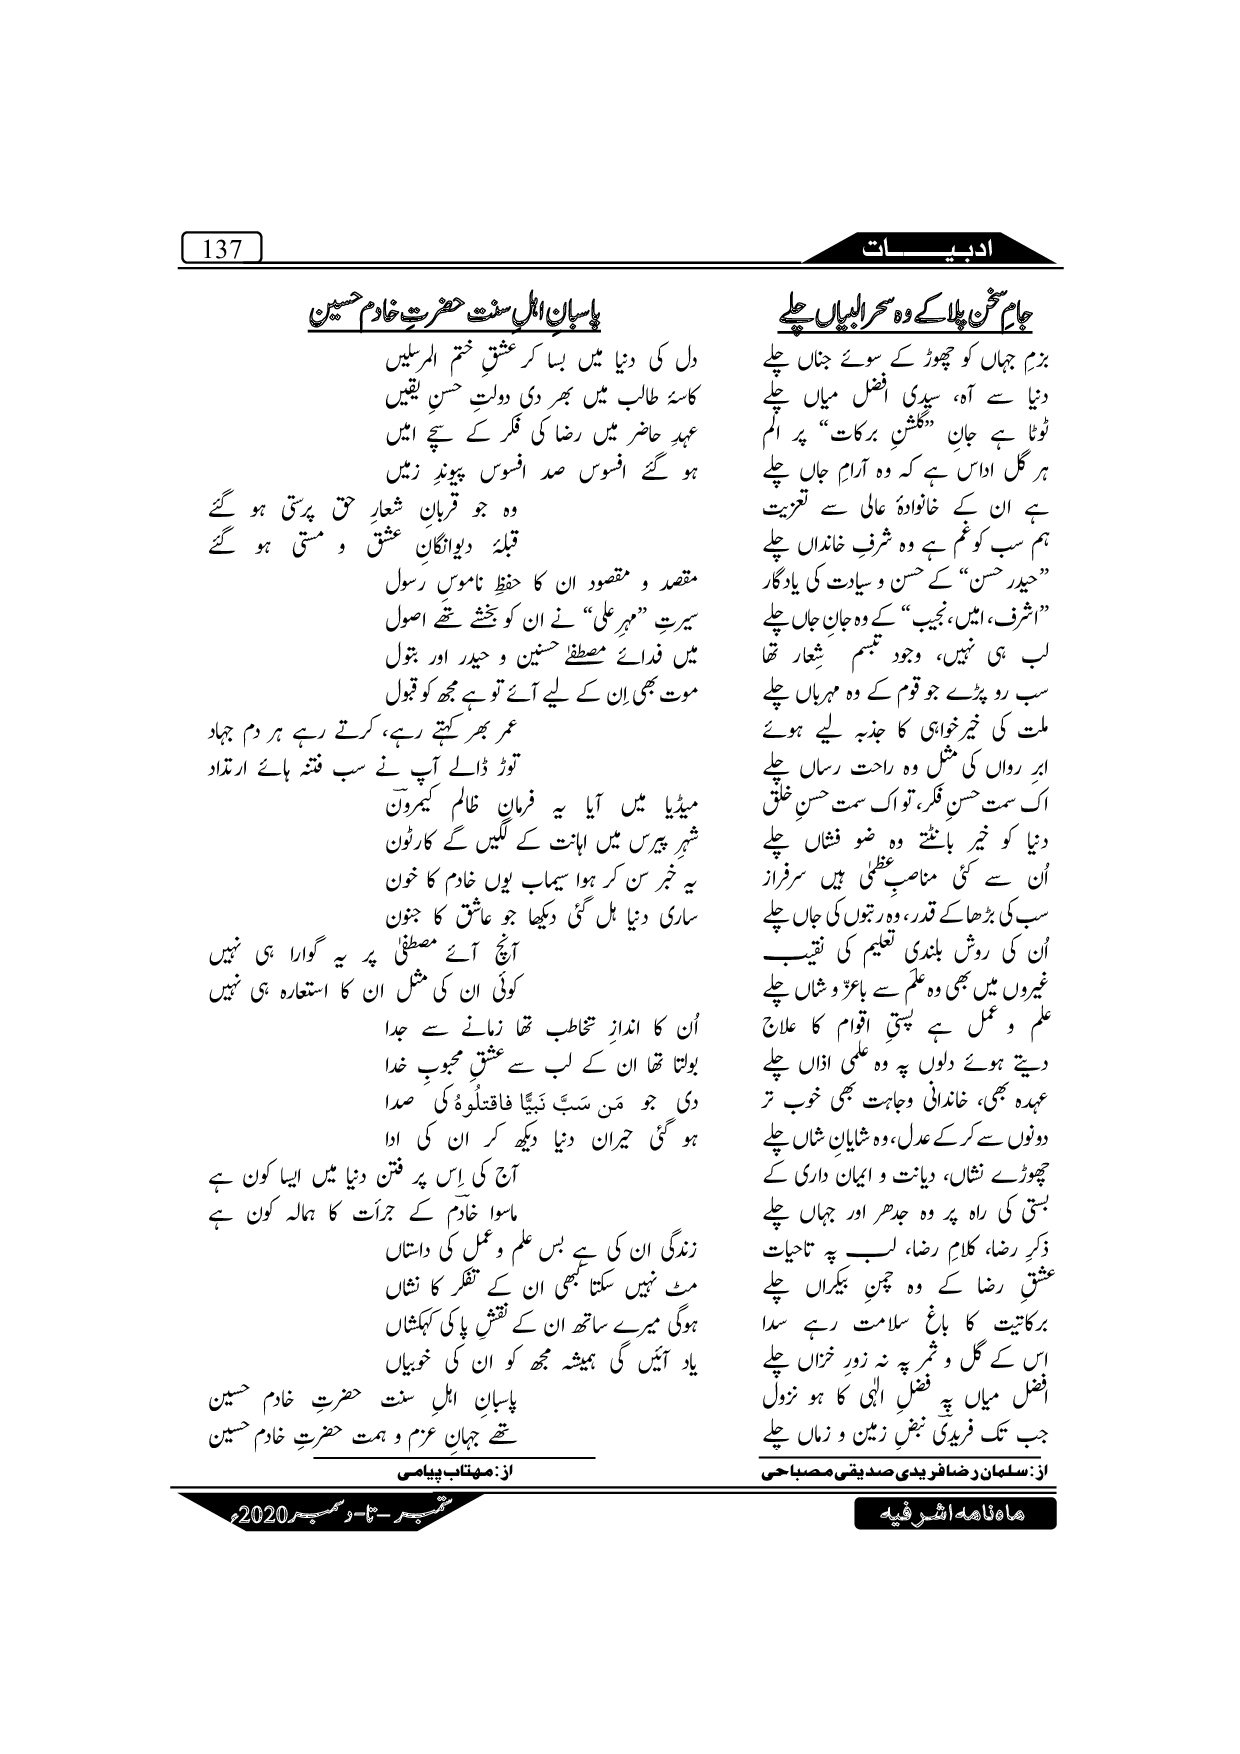 ادبیــــــات
137
جامِ سخن پلا کے وہ سحر البیاں چلے
بزمِ جہاں کو چھوڑ کے سوئے جناں چلے
دنیا سے آہ، سیدی افضل میاں چلے
ٹوٹا ہے جانِ ”گلشنِ برکات“ پر الم
ہر گل اداس ہے کہ وہ آرامِ جاں چلے
ہے ان کے خانوادۂ عالی سے تعزیت
ہم سب کو غم ہے وہ شرفِ خانداں چلے
”حیدر حسن“ کے حسن و سیادت کی یادگار
”اشرف، امیں، نجیب“ کے وہ جانِ جاں چلے
لب ہی نہیں، وجود تبسم شِعار تھا
سب رو پڑے جو قوم کے وہ مہرباں چلے
ملت کی خیرخواہی کا جذبہ لیے ہوئے
ابرِ رواں کی مثل وہ راحت رساں چلے
اک سمت حسنِ فکر، تو اک سمت حسنِ خلق
دنیا کو خیر بانٹتے وہ ضو فشاں چلے
اُن سے کئی مناصبِ عظمیٰ ہیں سرفراز
سب کی بڑھا کے قدر، وہ رتبوں کی جاں چلے
اُن کی روش بلندیِ تعلیم کی نقیب
غیروں میں بھی وہ علم سے باعزّ و شاں چلے
علم و عمل ہے پستیِ اقوام کا علاج
دیتے ہوئے دلوں پہ وہ علمی اذاں چلے
عہدہ بھی، خاندانی وجاہت بھی خوب تر
دونوں سے کر کے عدل، وہ شایانِ شاں چلے
چھوڑے نشاں، دیانت و ایمان داری کے
بستی کی راہ پر وہ جدھر اور جہاں چلے
ذکرِ رضا، کلامِ رضا، لب پہ تاحیات
عشقِ رضا کے وہ چمنِ بیکراں چلے
برکاتیت کا باغ سلامت رہے سدا
اس کے گل و ثمر پہ نہ زورِ خزاں چلے
افضل میاں پہ فضلِ الٰہی کا ہو نزول
جب تک فریدیؔ نبضِ زمین و زماں چلے
از: سلمان رضا فریدی صدیقی مصباحی
پاسبانِ اہلِ سنت حضرتِ خادم حسین
دل کی دنیا میں بسا کر عشقِ ختم المرسلیں
کاسۂ طالب میں بھر دی دولتِ حسنِ یقیں
عہدِ حاضر میں رضا کی فکر کے سچے امیں
ہو گئے افسوس صد افسوس پیوندِ زمیں
وہ جو قربانِ شعارِ حق پرستی ہو گئے
قبلۂ دیوانگانِ عشق و مستی ہو گئے
مقصد و مقصود ان کا حفظِ ناموسِ رسول
سیرتِ ”مہرِ علی“ نے ان کو بخشے تھے اصول
میں فدائے مصطفےٰ حسنین و حیدر اور بتول
موت بھی اِن کے لیے آئے تو ہے مجھ کو قبول
عمر بھر کہتے رہے، کرتے رہے ہر دم جہاد
توڑ ڈالے آپ نے سب فتنہ ہائے ارتداد
میڈیا میں آیا یہ فرمانِ ظالم کیمروںؔ
شہرِ پیرس میں اہانت کے لگیں گے کارٹون
یہ خبر سن کر ہوا سیماب یوں خادم کا خون
ساری دنیا ہل گئی دیکھا جو عاشق کا جنون
آنچ آئے مصطفیٰ پر یہ گوارا ہی نہیں
کوئی ان کی مثل ان کا استعارہ ہی نہیں
اُن کا اندازِ تخاطب تھا زمانے سے جدا
بولتا تھا ان کے لب سے عشقِ محبوبِ خدا
دی جو مَن سَبَّ نَبِيًّا فاقتلُوهُ کی صدا
ہو گئی حیران دنیا دیکھ کر ان کی ادا
آج کی اِس پر فتن دنیا میں ایسا کون ہے
ماسوا خادمؔ کے جرأت کا ہمالہ کون ہے
زندگی ان کی ہے بس علم و عمل کی داستاں
مٹ نہیں سکتا کبھی ان کے تفکر کا نشاں
ہوگی میرے ساتھ ان کے نقشِ پا کی کہکشاں
یاد آئیں گی ہمیشہ مجھ کو ان کی خوبیاں
پاسبانِ اہلِ سنت حضرتِ خادم حسین
تھے جہانِ عزم و ہمت حضرتِ خادم حسین
از: مہتاب پیامی
ماہ نامہ اشرفیہ
ستمبر-تا-دسمبر 2020ء